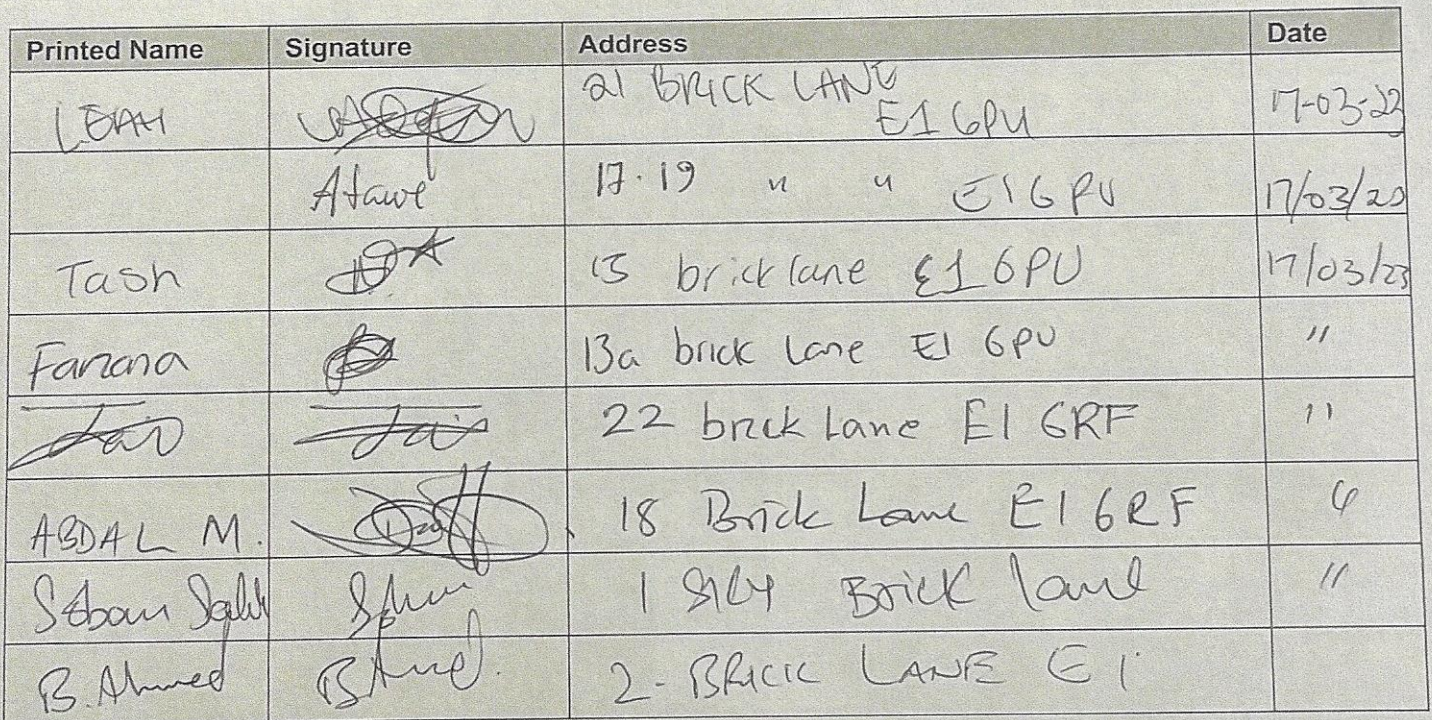 Printed Name Signature Address Date
LEAH 21 BRICK LANE
E1 6PU 17-03-22
Atawe 17-19 " " E1 6PU 17/03/23
Tash 13 brick lane E1 6PU 17/03/23
Farzana 13a brick Lane E1 6PU "
22 brick Lane E1 6RF "
ABDAL M. 18 Brick Lane E1 6RF "
1 Brick lane "
B. Ahmed B Ahmed. 2- BRICK LANE E1